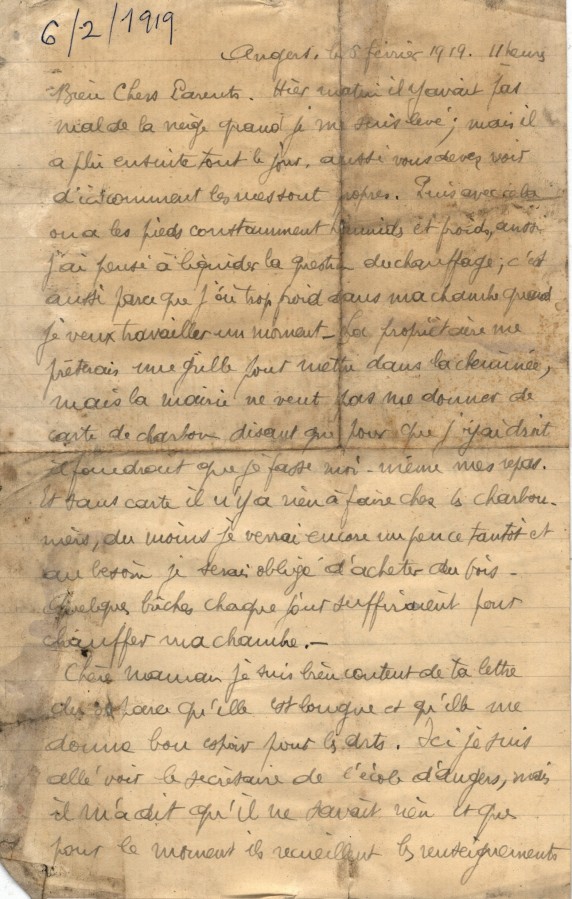 6/2/1919
Angers. le 6 février 1919. 11 heures
Bien Chers Parents. Hier matin il y avait pas
mal de la neige quand je me suis levé; mais il
a plu ensuite tout le jour. aussi vous devez voir
d'ici comment les rues sont propres. Puis avec cela
on a les pieds constamment humids et froids, aussi
j'ai pensé à liquider la question du chauffage; c'est
aussi parce que j'ai trop froid dans ma chambre quand
je veux travailler un moment - La propriétaire me
prêterais une grille pour mettre dans la cheminée,
mais la mairie ne veut pas me donner de
carte de charbon disant que pour que j'y ai droit
il foudrait que je fasse moi-même mes repas.
Et sans carte il n'y a rien à faire chez les charbon-
niers, du moins je verrai encore un peu ce tantôt et
au besoin je serais obligé d'acheter du bois -
Quelques bûches chaque jour suffiraient pour
chauffer ma chambre. -
Chère maman je suis bien content de ta lettre
du parce qu'elle est longue et qu'elle me
donne bon espoir pour les arts. Ici je suis
allé voir le secrétaire de l'école d'angers, mais
il m'a dit qu'il ne savait rien et que
pour le moment ils recueillent les renseignements